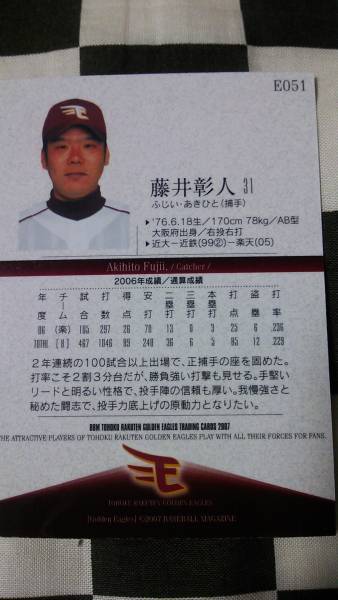 E051
藤井彰人 31
ふじい・あきひと（捕手）
▶'76.6.18生／170cm 78kg／AB型
大阪府出身／右投右打
▶近大－近鉄(99②)－楽天(05)
Akihito Fujii, / Catcher /
2006年成績／通算成績
年度 チーム 試合 打数 得点 安打 二塁打 三塁打 本塁打 打点 盗塁 打率
06 (楽) 105 297 26 70 13 0 3 25 6 .236
TOTAL [8] 467 1046 89 240 36 5 85 12 .229
２年連続の100試合以上出場で、正捕手の座を固めた。
打率こそ２割３分台だが、勝負強い打撃も見せる。手堅いリ
ードと明るい性格で、投手陣の信頼も厚い。我慢強さと
秘めた闘志で、投手力底上げの原動力となりたい。
BBM TOHOKU RAKUTEN GOLDEN EAGLES TRADING CARDS 2007
THE ATTRACTIVE PLAYERS OF TOHOKU RAKUTEN GOLDEN EAGLES PLAY WITH ALL THEIR FORCES FOR FANS.
E
TOHOKU RAKUTEN GOLDEN EAGLES
[Golden Eagles] ©2007 BASEBALL MAGAZINE